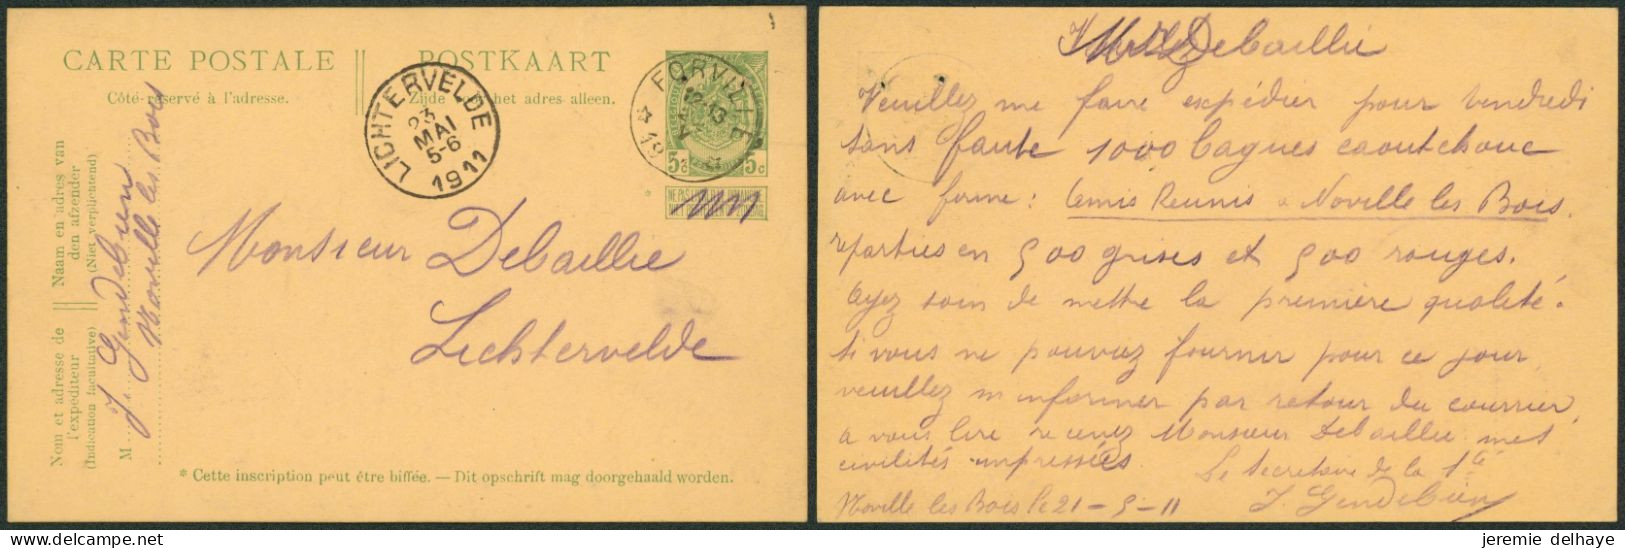 CARTE POSTALE
POSTKAART
Côté réservé à l'adresse.
Zijde het adres alleen.
LICHTERVELDE
23
MAI
5-6
1911
FORVILLE
12-13
5c 5c
NE PAS LIVRER LE DIMANCHE
NIET BESTELLEN OP ZONDAG
Monsieur Debaillie
Lichtervelde
Naam en adres van
den afzender
(Niet verplichtend)
Nom et adresse de
l'expéditeur
(Indication facultative)
M J. Gendebien
Noville les Bois
* Cette inscription peut être biffée. — Dit opschrift mag doorgehaald worden.
Debaillie
Veuillez me faire expédier pour vendredi
sans faute 1000 bagues caoutchouc
avec firme: Amis Reunis a Noville les Bois.
réparties en 500 grises et 500 rouges.
Ayez soin de mettre la première qualité.
Si vous ne pouviez fournir pour ce jour,
veuillez m informer par retour du courrier,
a vous lire recevez Monsieur Debaillie mes
civilités impressées
Le Secretaire de la Sté
Noville les Bois le 21-5-11
J. Gendebien
jeremie delhaye